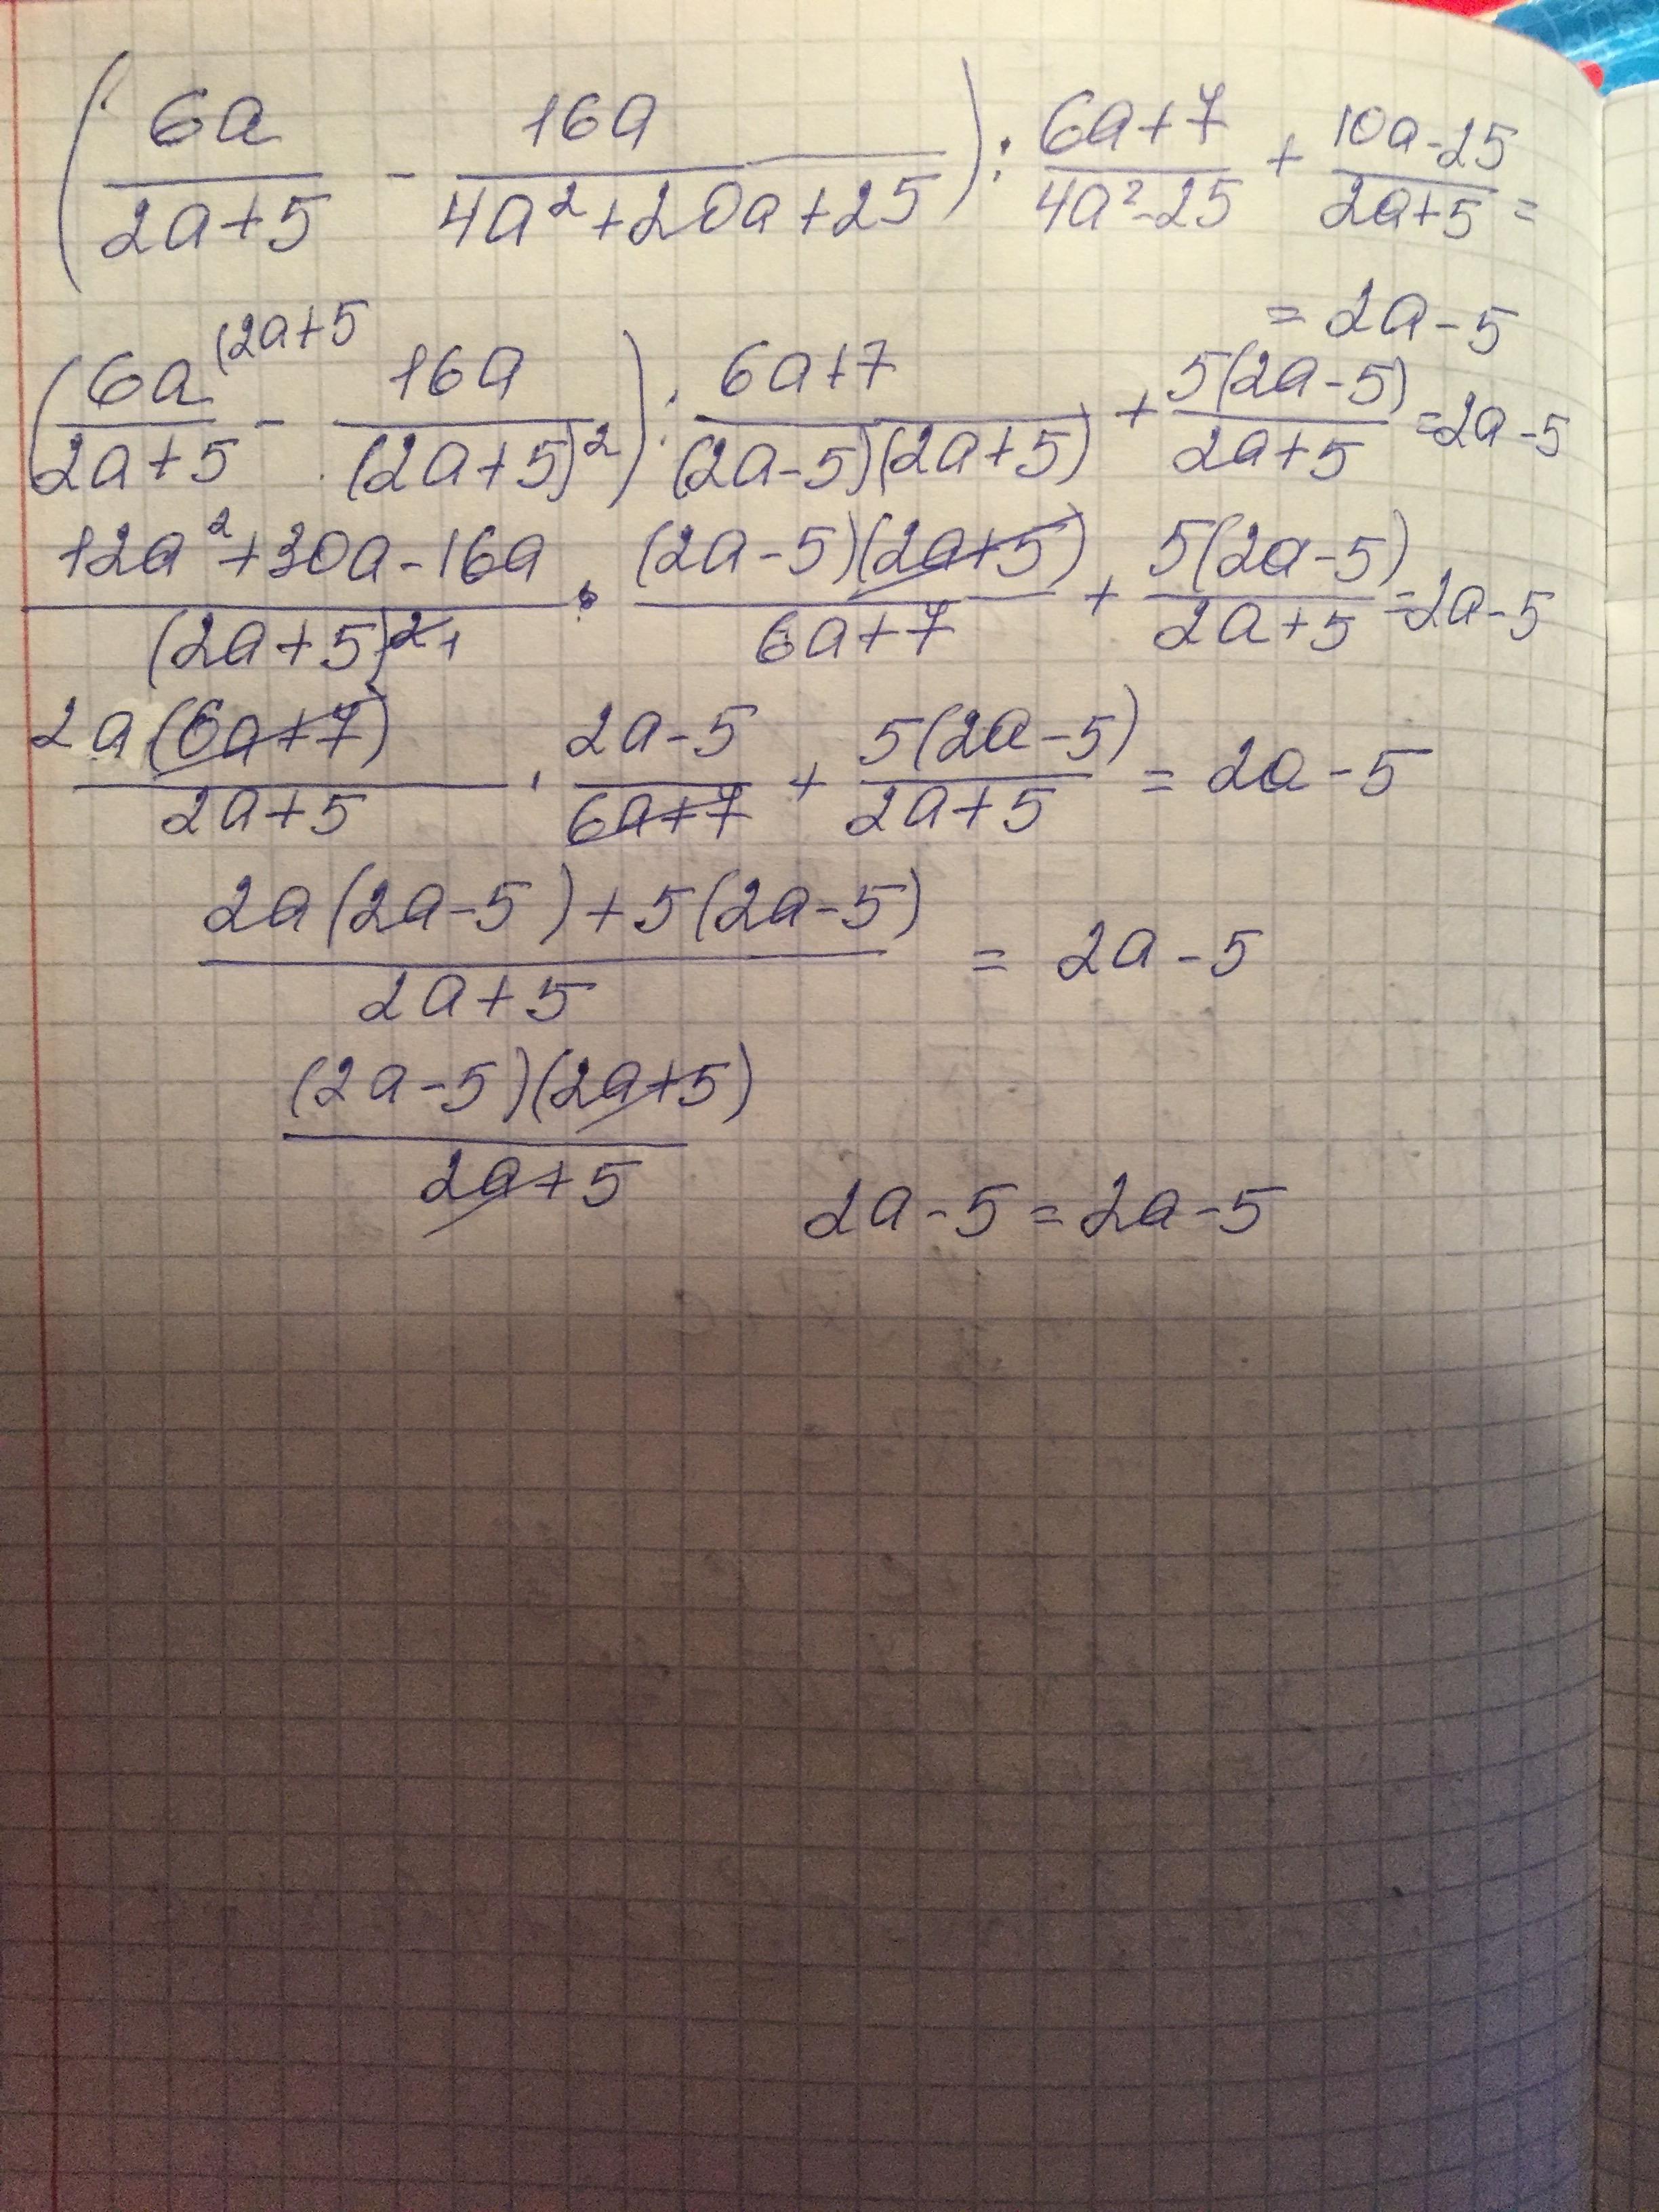 (6a/(2a+5) - 16a/(4a²+20a+25)) : (6a+7)/(4a²-25) + (10a-25)/(2a+5) =
= 2a-5
(6a (2a+5/(2a+5) - 16a/(2a+5)²) : (6a+7)/((2a-5)(2a+5)) + 5(2a-5)/(2a+5) = 2a-5
(12a²+30a-16a)/(2a+5)²¹ · (2a-5)(2a+5)/(6a+7) + 5(2a-5)/(2a+5) = 2a-5
2a(6a+7)/(2a+5) · (2a-5)/(6a+7) + 5(2a-5)/(2a+5) = 2a-5
(2a(2a-5)+5(2a-5))/(2a+5) = 2a-5
(2a-5)(2a+5)/(2a+5) 2a-5=2a-5